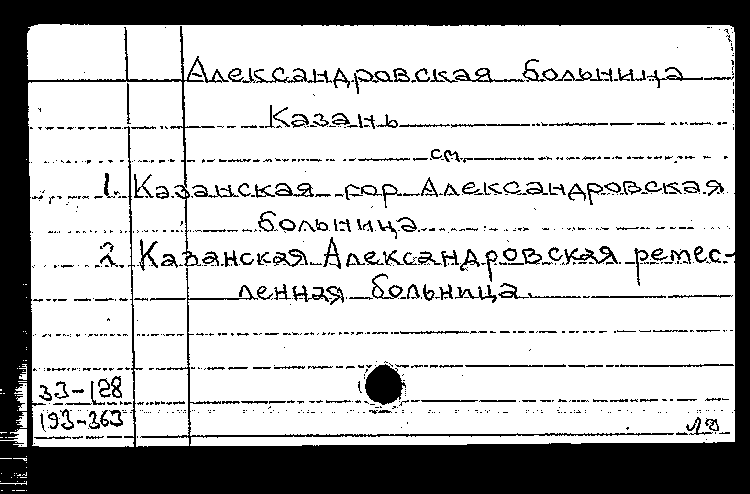 Александровская больница
Казань
см.
1. Казанская гор Александровская
больница
2 Казанская Александровская ремес-
ленная больница.
33-128
193-363